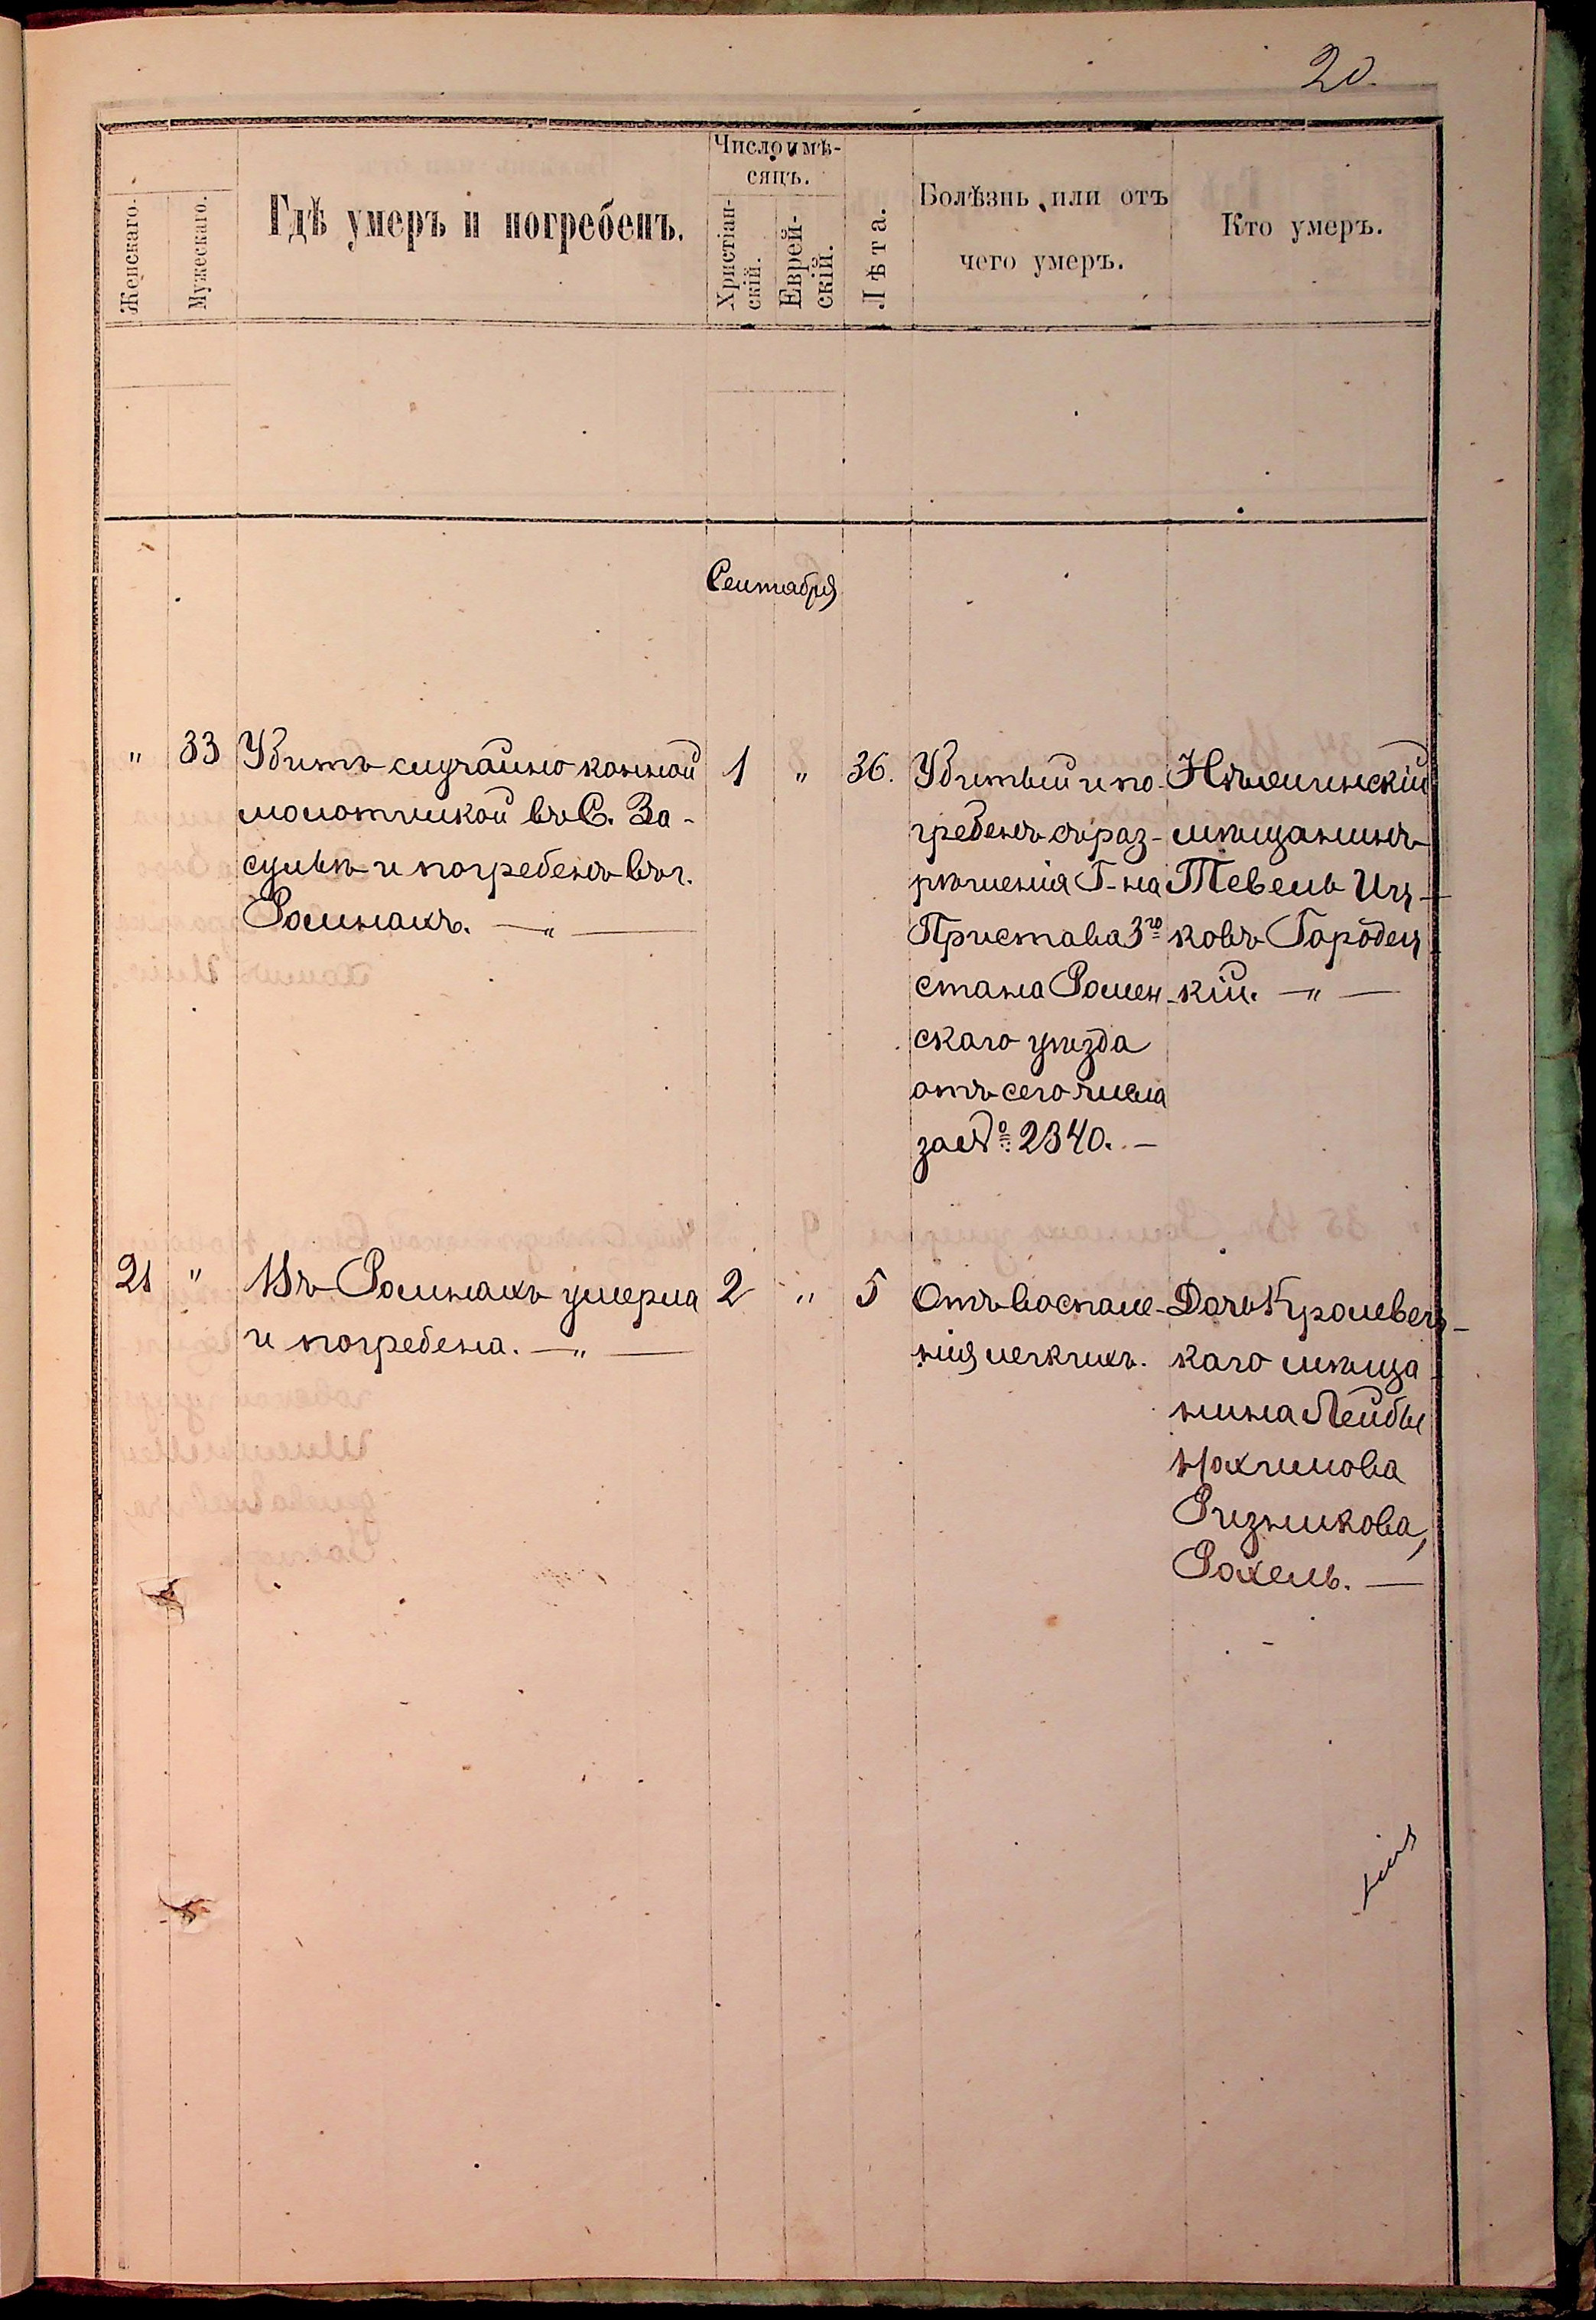 20.
Женскаго.
Мужескаго.
Гдѣ умеръ и погребенъ.
Число и мѣ-
сяцъ.
Христіан-
скій.
Еврей-
скій.
Лѣта.
Болѣзнь или отъ
чего умеръ.
Кто умеръ.
Сентября
" 33
Убитъ случайно конной
молотилкой въ С. За-
сульѣ и погребенъ въ г.
Ромнахъ. — " —
1 " 36.
Убитый и по-
гребенъ съ раз-
рѣшенія Г-на
Пристава 3го
стана Ромен-
скаго уѣзда
отъ сего числа
за № 2340. —
мѣщанинъ
Тевель Иц-
ковъ Городец
кій. — " —
21 "
Въ Ромнахъ умерла
и погребена. — " —
2 " 5
Отъ воспале-
нія легкихъ.
Дочь Кролевец-
каго мѣща-
нина Лейбы
Нахимова
Ризникова,
Рахель. —